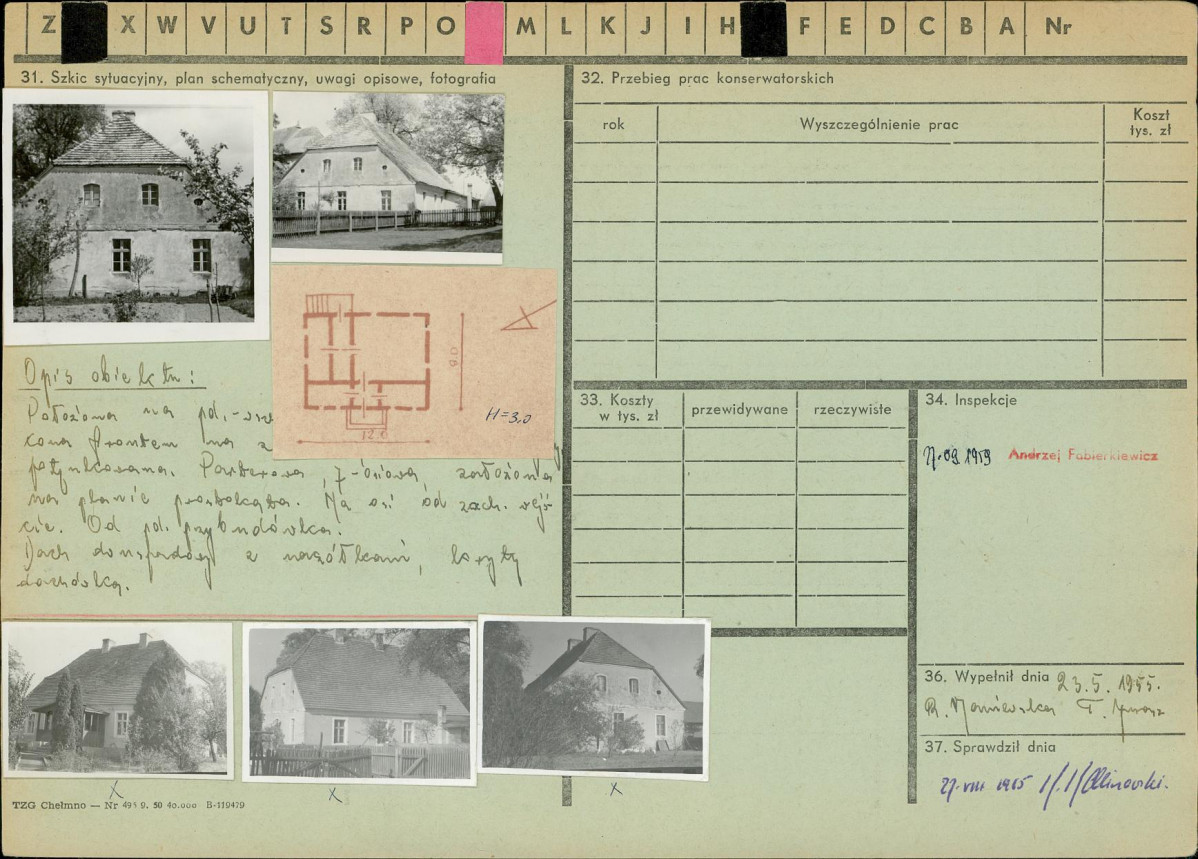 Z X W V U T S R P O M L K J I H F E D C B A Nr
31. Szkic sytuacyjny, plan schematyczny, uwagi opisowe, fotografia
12.0
8.0
H=3,0
Opis obiektu:
Położona na pd.-
frontem na z
potynkowana. Parterowa, 7-osiowa, założona
na planie prostokąta. Na osi od zach. wejś-
cie. Od pd. przybudówka.
Dach dwuspadowy z naczółkami, kryty
dachówką.
x x x
TZG Chełmno — Nr 495 9. 50 40.000 B-119479
32. Przebieg prac konserwatorskich
rok Wyszczególnienie prac Koszt
tys. zł
33. Koszty
w tys. zł
przewidywane rzeczywiste
34. Inspekcje
Andrzej Fabierkiewicz
36. Wypełnił dnia 23.5.1955.
37. Sprawdził dnia